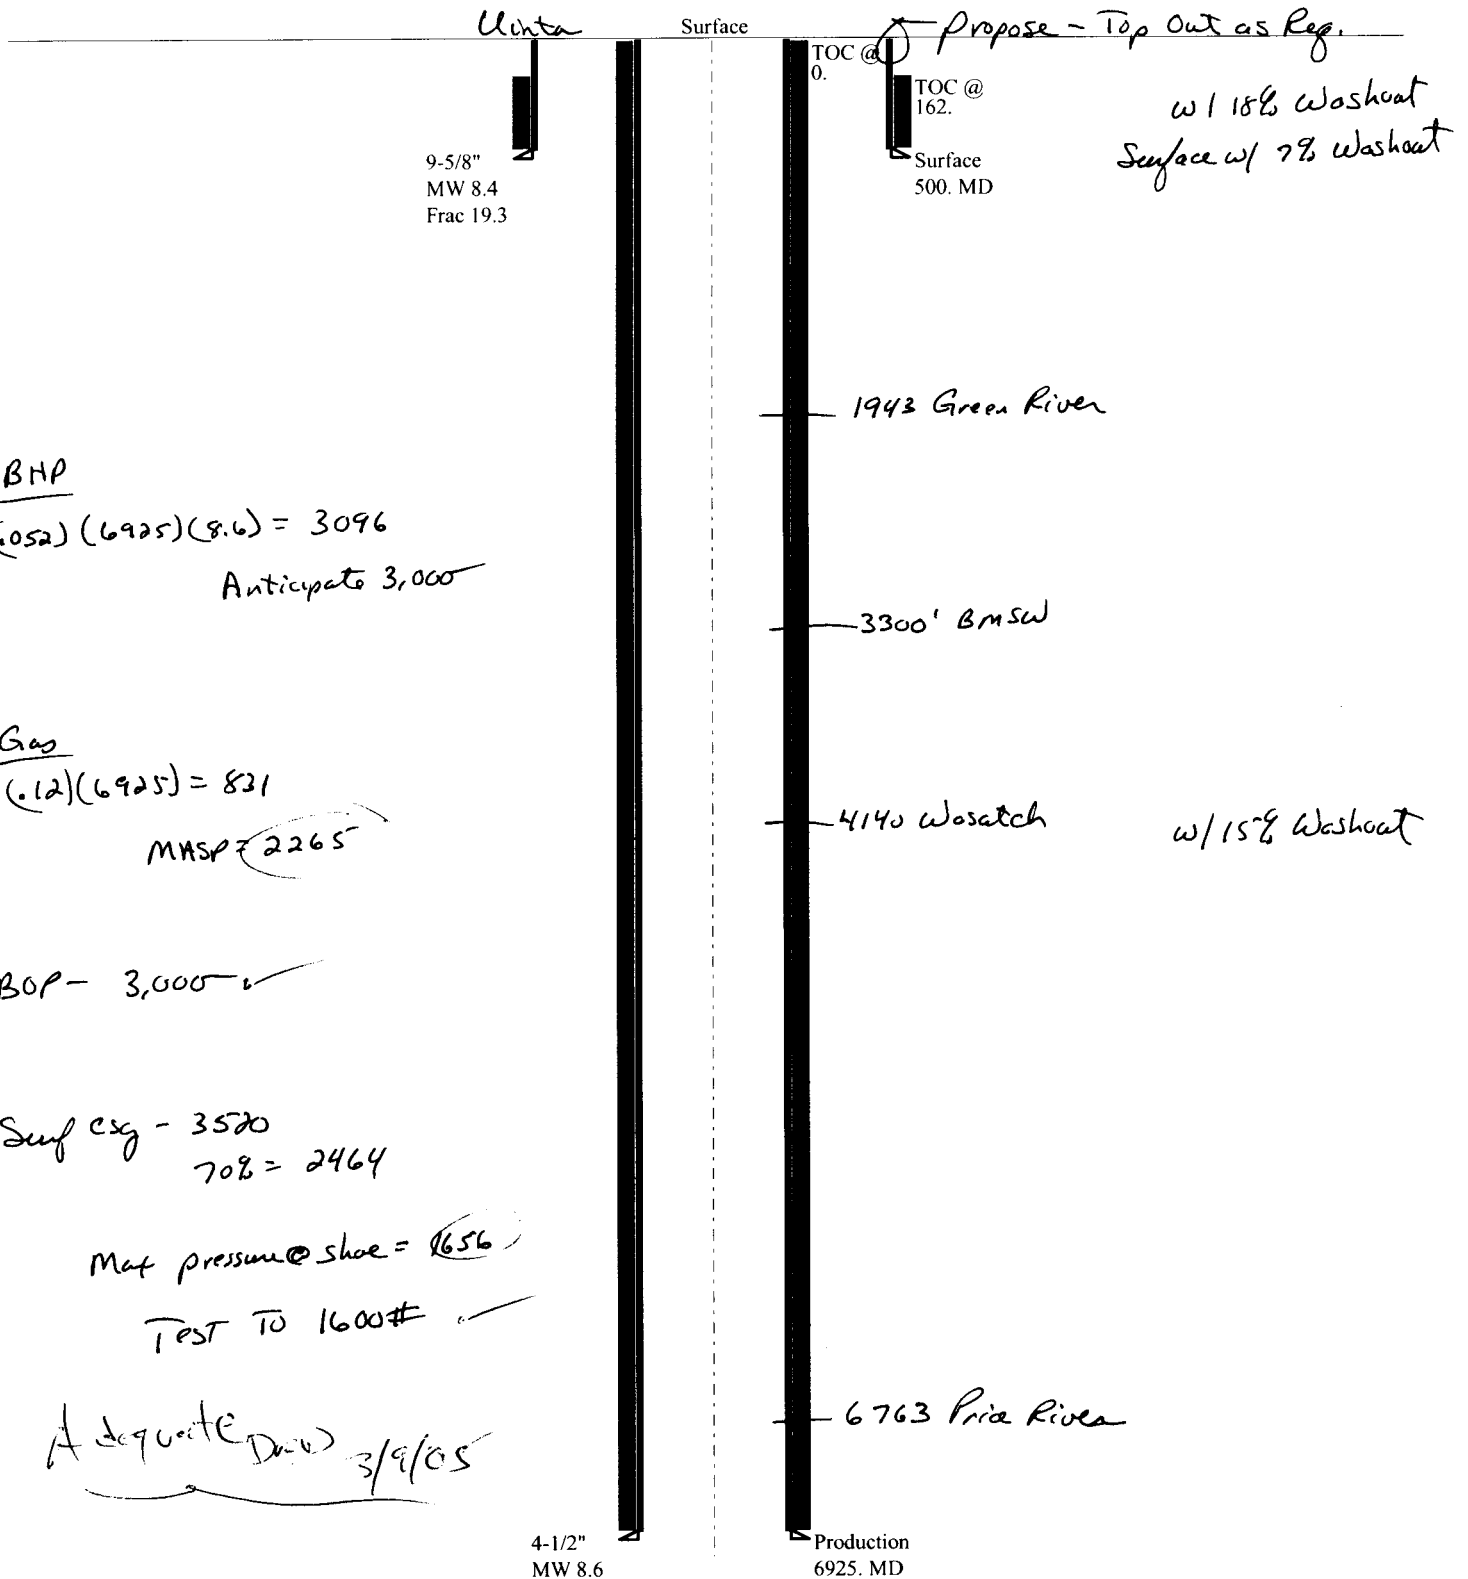 Uinta
Surface
Propose - Top Out as Req.
TOC @
0.
TOC @
162.
w/ 18% Washout
Surface w/ 7% Washout
9-5/8"
MW 8.4
Frac 19.3
Surface
500. MD
1943 Green River
BHP
(.052)(6925)(8.6) = 3096
Anticipate 3,000
3300' BMSW
Gas
(.12)(6925) = 831
MASP = 2265
4140 Wasatch
w/ 15% Washout
BOP - 3,000 ✓
Surf csg - 3520
70% = 2464
Max pressure @ shoe = 1656
Test To 1600# ✓
6763 Price River
Adequate
3/9/05
4-1/2"
MW 8.6
Production
6925. MD